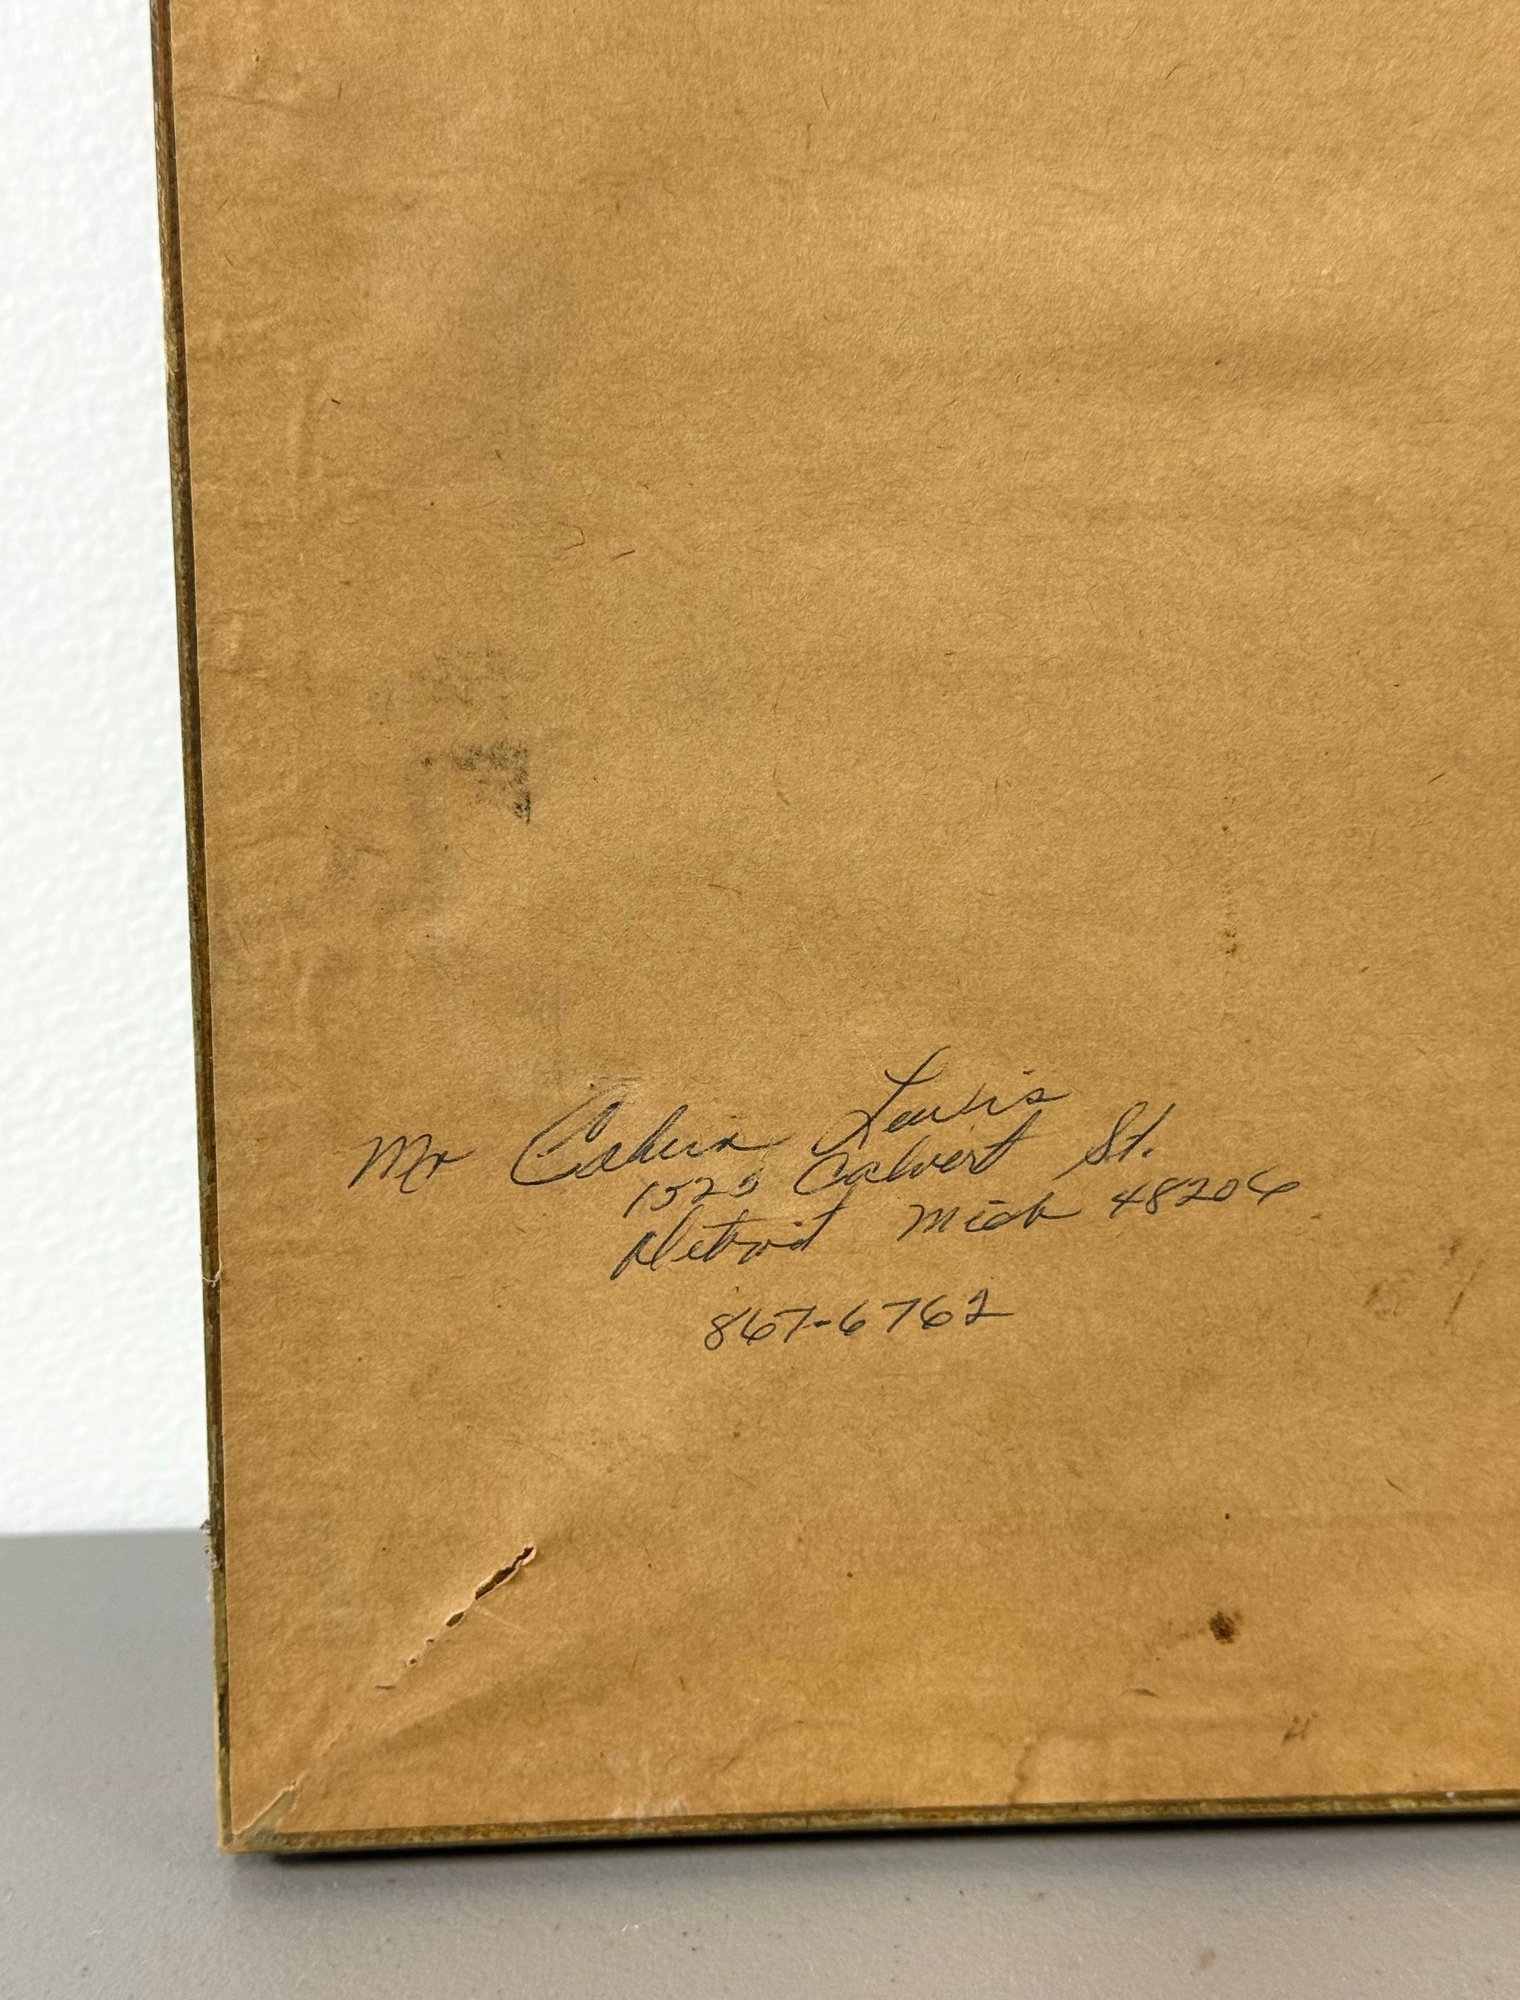 Mr Calvin Lewis
1525 Calvert St.
Detroit Mich 48206
867-6762